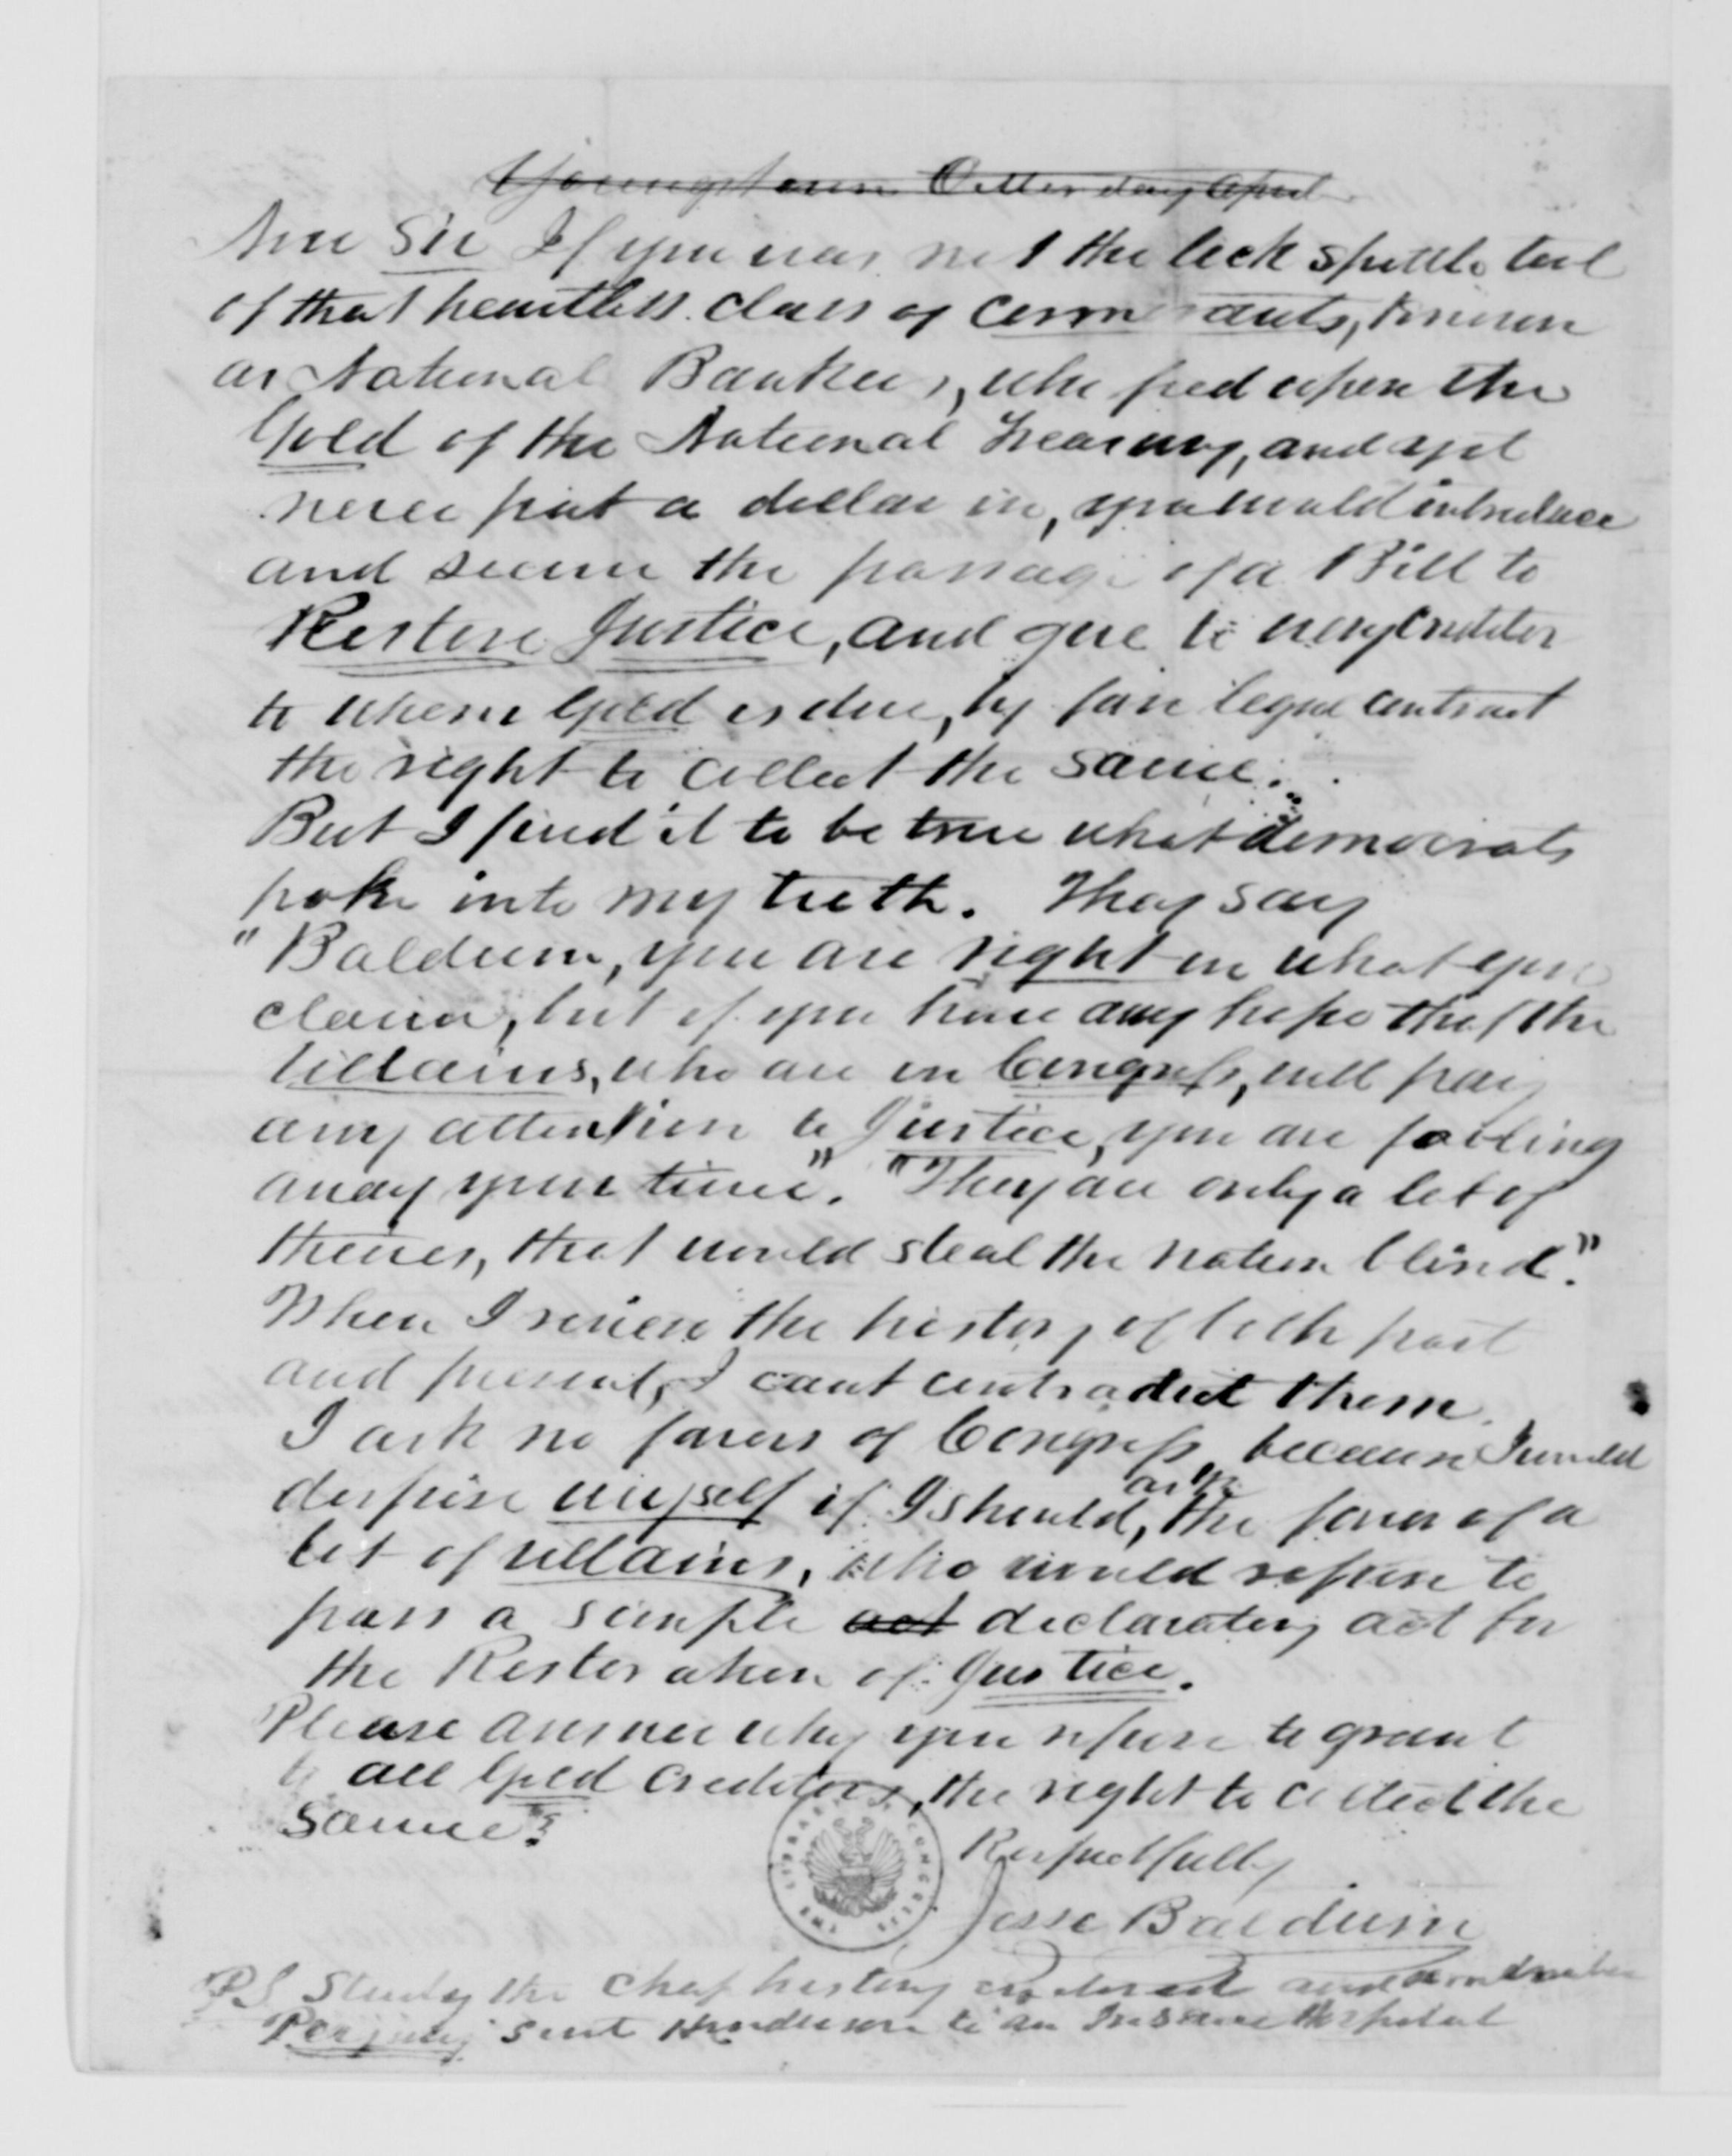 Now Sir If you was not the lick spittle tool
of that heartless class of cormorants, known
as National Bankers, who feed upon the
Gold of the National Treasury, and yet
never put a dollar in, you would introduce
and secure the passage of a Bill to
Restore Justice, and give to every creditor
to whom Gold is due, by fair legal contract
the right to collect the same.
But I find it to be true what democrats
poke into my teeth. They say
"Baldwin, you are right in what you
claim, but if you have any hope that the
villains, who are in Congress, will pay
any attention to Justice, you are fooling
away your time". "They are only a lot of
thieves, that would steal the nation blind".
When I review the history of both past
and present, I cant contradict them.
I ask no favors of Congress, because I would
despise myself if I should, ask the favor of a
lot of villains, who would refuse to
pass a simple act declaratory act for
the Restoration of Justice.
Please answer why you refuse to grant
to all Gold creditors, the right to collect the
same?
Respectfully
Jesse Baldwin
THE LIBRARY OF CONGRESS
PS Study the Chap history enclosed and
Perjury sent to an Insane Hospital